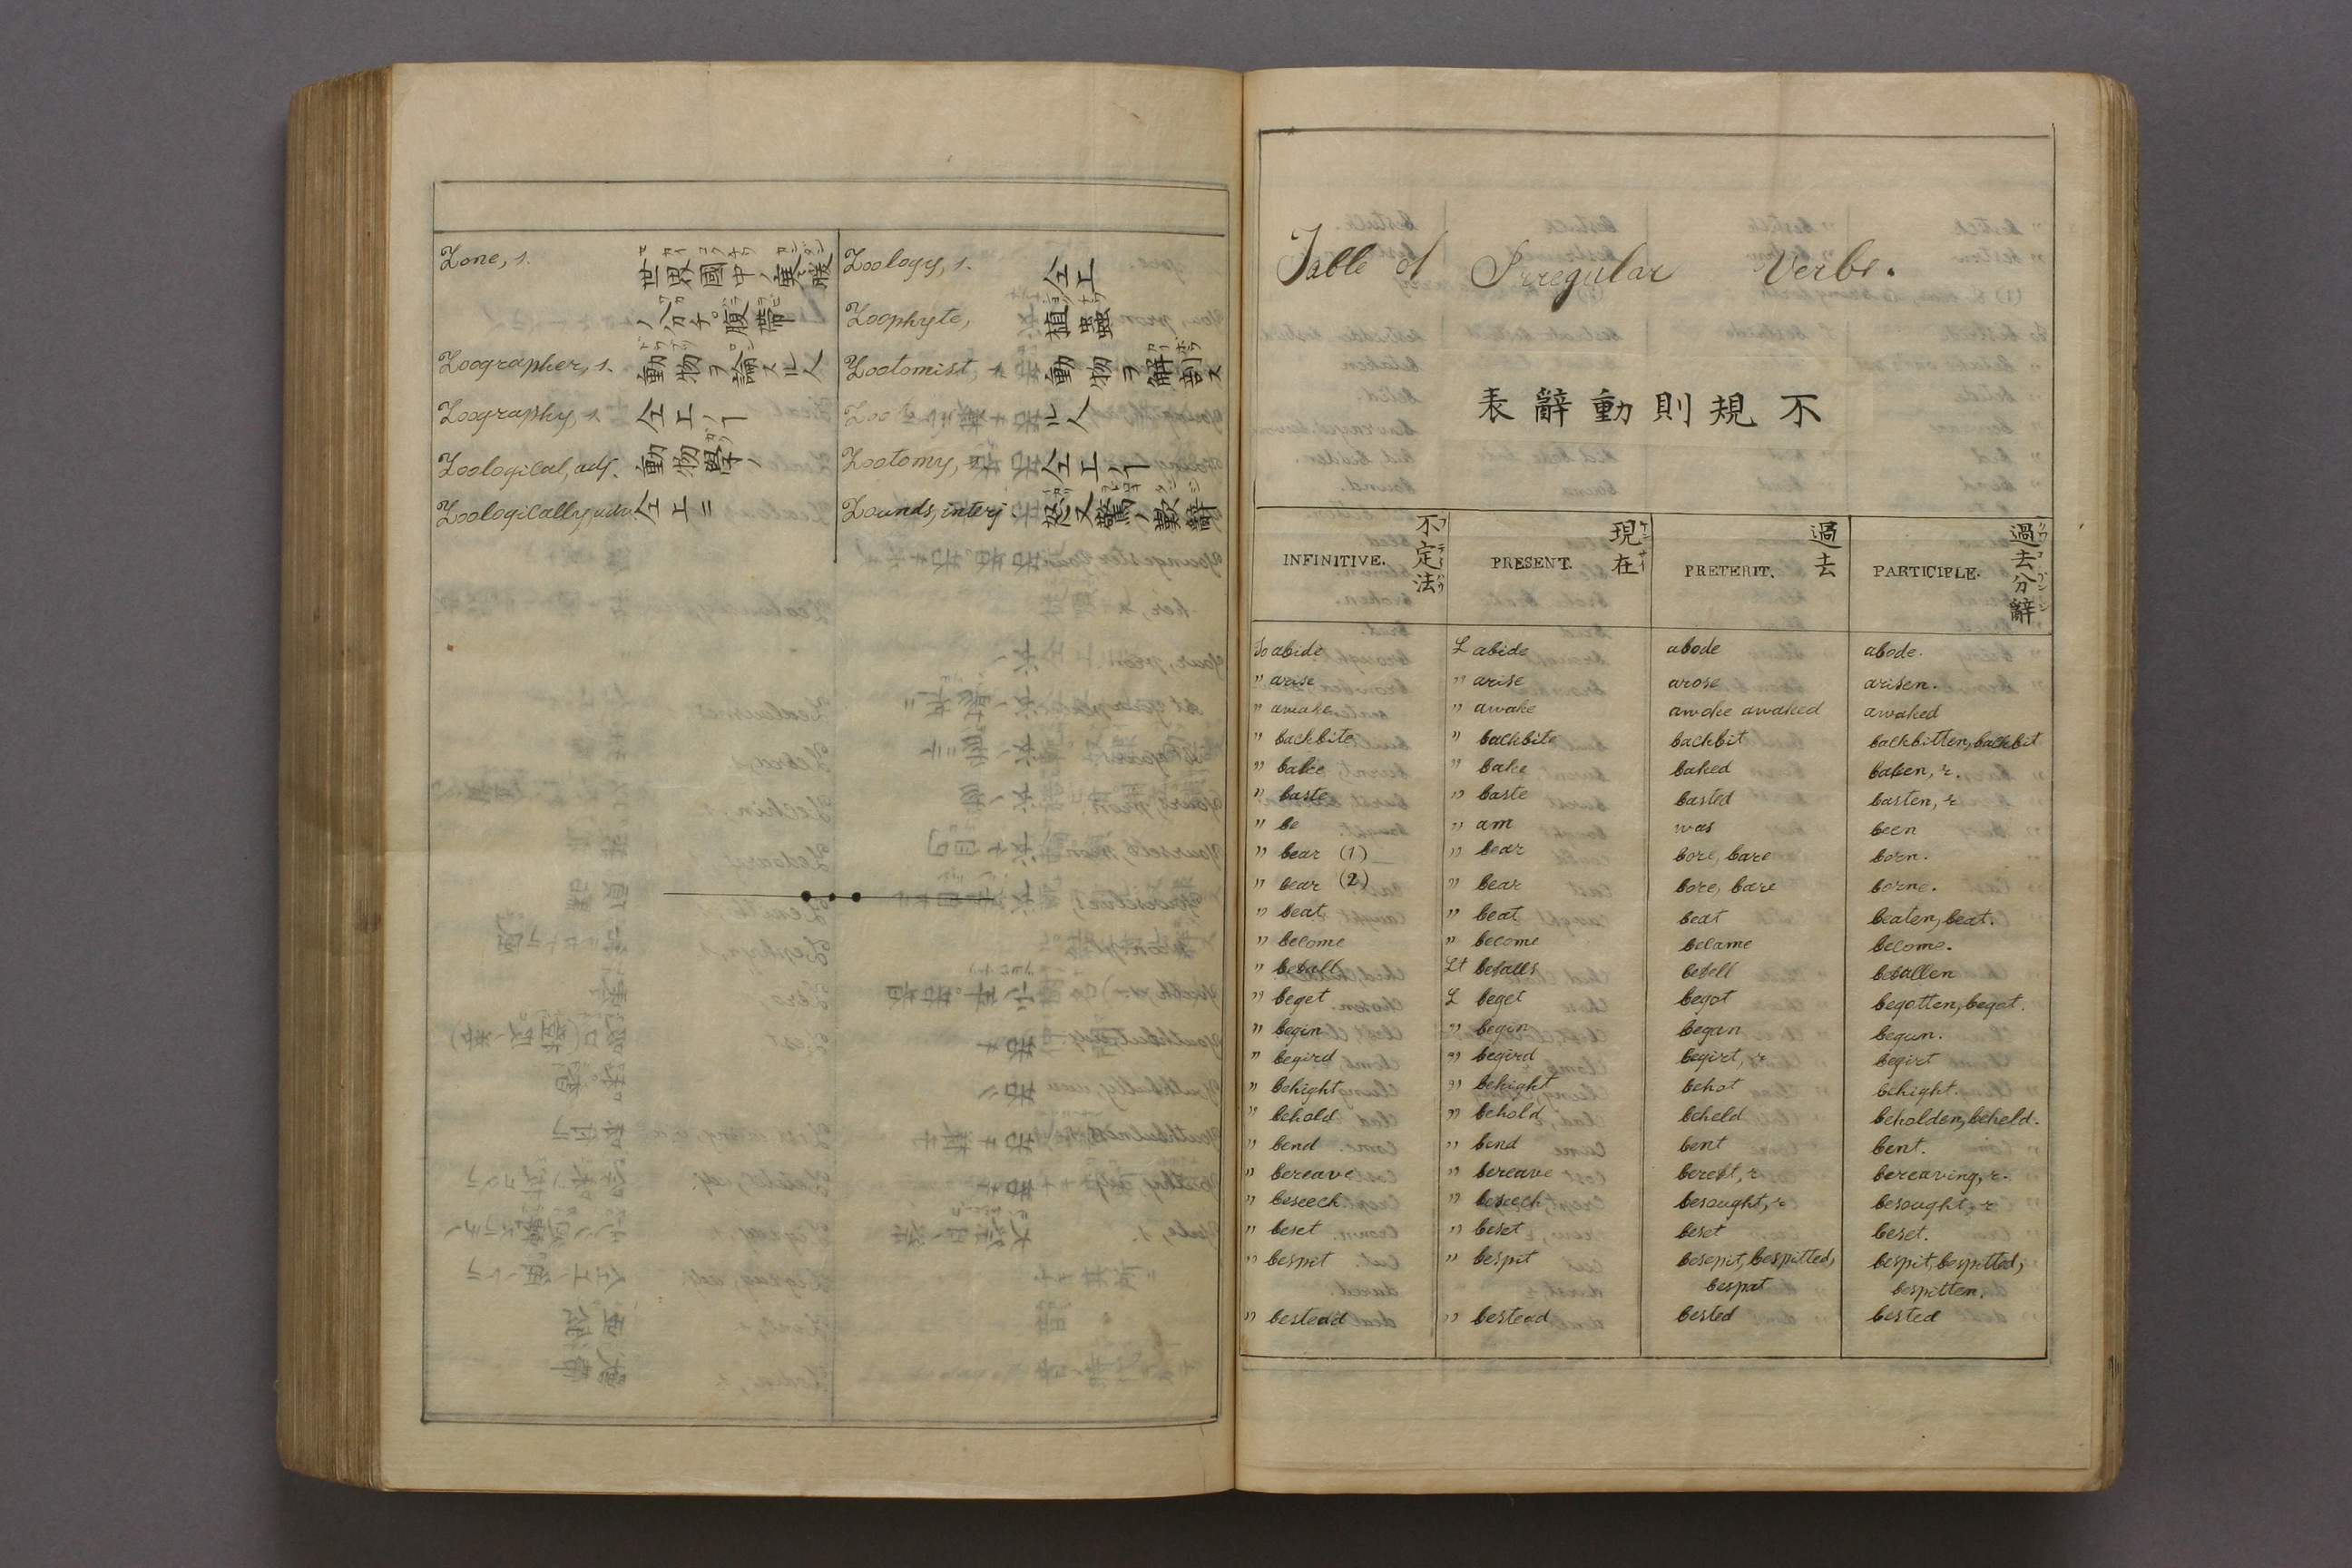 Zone, s. 世界國中ノ寒暖
ノ分チ。腹帶
Zoographer, s. 動物ヲ論スル人
Zoography, s. 仝上ノ
Zoological, adj. 動物學ノ
Zoologically adv. 仝上ニ
Zoology, s. 仝上
Zoophyte, 植蟲
Zootomist, s. 動物ヲ解剖ス
Zoo ル人
Zootomy, s. 仝上ノ
Zounds, interj. 怒又驚ノ歎辭
Table of Irregular Verbs.
表辭動則規不
INFINITIVE. 不定法 PRESENT. 現在 PRETERIT. 過去 PARTICIPLE. 過去分辭
To abide I abide abode abode.
" arise " arise arose arisen.
" awake " awake awoke awaked awaked
" backbite " backbite backbit backbitten, backbit
" bake " bake baked baken, r.
" baste " baste basted basten, r
" be " am was been
" bear (1) " bear bore, bare born.
" bear (2) " bear bore, bare borne.
" beat " beat beat beaten, beat.
" become " become became become.
" befall It befalls befell befallen
" beget I beget begot begotten, begot.
" begin " begin began begun.
" begird " begird begirt, r begirt
" behight " behight behot behight.
" behold " behold beheld beholden, beheld.
" bend " bend bent bent.
" bereave " bereave bereft, r bereaving, r.
" beseech " beseech besought, r besought, r
" beset " beset beset beset.
" bespit " bespit besepit, bespitted, bespit, bespitted,
bespat bespitten.
" bestead " bestead bested bested